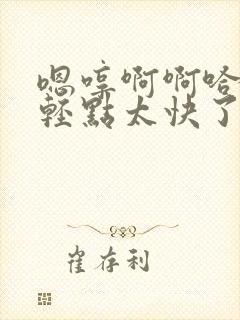 嗯嘑啊啊哈
輕點太快了
崔存利